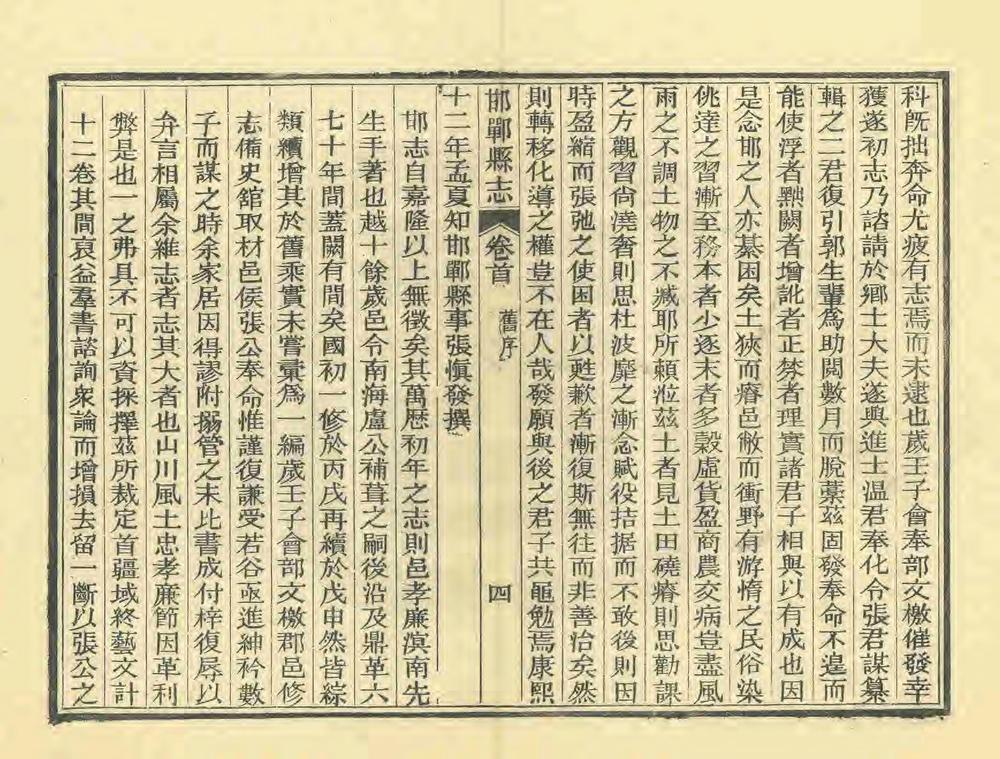 科既拙奔命尤疲有志焉而未逮也歲王子會奉部文檄催發幸
獲遂初志乃諮請於鄉士大夫遂興進士溫君奉化令張君謀纂
輯之二君復引郭生輩為助閱數月而脫藁茲固發奉命不遑而
能使浮者黜闕者增訛者正棼者理實諸君子相與以有成也因
是念邯之人亦綦困矣土狹而瘠邑敝而衝野有游惰之民俗染
佻達之習漸至務本者少逐末者多穀虛貨盈商農交病豈盡風
雨之不調土物之不臧耶所賴涖茲土者見土田磽瘠則思勸課
之方觀習尙澆奢則思杜波靡之漸念賦役拮据而不敢後則因
時盈縮而張弛之使困者以甦歉者漸復斯無往而非善治矣然
則轉移化導之權豈不在人哉發願與後之君子共黽勉焉康熙
邯鄲縣志 卷首 舊序 四
十二年孟夏知邯鄲縣事張愼發撰
邯志自嘉隆以上無徵矣其萬歷初年之志則邑孝廉滇南先
生手著也越十餘歲邑令南海盧公補葺之嗣後沿及鼎革六
七十年間蓋闕有間矣國初一修於丙戌再續於戊申然皆綜
類續增其於舊乘實未嘗彙為一編歲王子會部文檄郡邑修
志備史舘取材邑侯張公奉命惟謹復謙受若谷亟進紳衿數
子而謀之時余家居因得謬附搦管之末比書成付梓復辱以
弁言相屬余維志者志其大者也山川風土忠孝廉節因革利
弊是也一之弗具不可以資採擇茲所裁定首疆域終藝文計
十二卷其間裒益羣書諮詢衆論而增損去留一斷以張公之